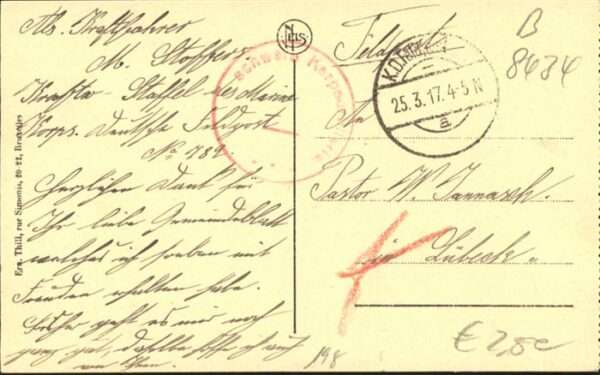 Abs. Kraftfahrer
M. Stoffers
Kraftw. Staffel des Marine
Korps. Deutsche Feldpost
No 782.
Herzlichen Dank für
Ihr liebe Gemeindeblatt
welches ich soeben mit
Freuden erhalten habe.
geht es mir noch
ganz gut, dasselbe hoffe ich auch
von Ihnen.
Ern. Thill, rue Simonis, 20-22, Bruxelles
Feldpost
25.3.17.4-5 N
a
An
Pastor W. Jannasch.
in Lübeck.
B
8434
198
€ 2,50